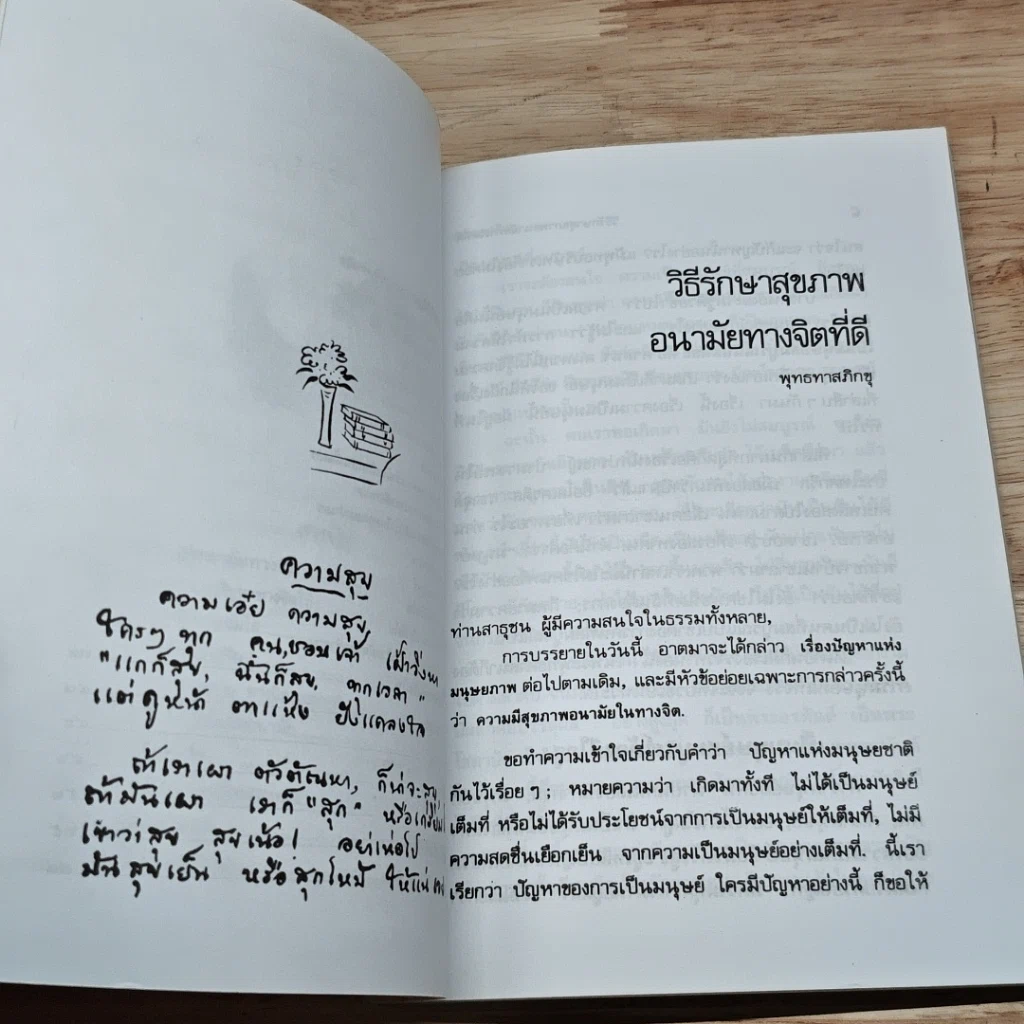 ความสุข
ความเอ๋ย ความสุข
ใครๆ ทุก คน, ชอบเจ้า เฝ้าวิ่งหา
"แกก็สุข, ฉันก็สุข, ทุกเวลา"
แต่ดูหน้า ตาแห้ง ยังแคลงใจ
ถ้าเราเผา ตัวตัณหา, ก็น่าจะสุข
ถ้ามันเผา เราก็ "สุก" หรือเกรียม
เขาว่าสุข สุขเน้อ! อย่าเห่อไป
มันสุขเย็น หรือสุกไหม้ ให้แน่
วิธีรักษาสุขภาพ
อนามัยทางจิตที่ดี
พุทธทาสภิกขุ
ท่านสาธุชน ผู้มีความสนใจในธรรมทั้งหลาย,
การบรรยายในวันนี้ อาตมาจะได้กล่าว เรื่องปัญหาแห่ง
มนุษยภาพ ต่อไปตามเดิม, และมีหัวข้อย่อยเฉพาะการกล่าวครั้งนี้
ว่า ความมีสุขภาพอนามัยในทางจิต.
ขอทำความเข้าใจเกี่ยวกับคำว่า ปัญหาแห่งมนุษยชาติ
กันไว้เรื่อย ๆ ; หมายความว่า เกิดมาทั้งที ไม่ได้เป็นมนุษย์
เต็มที่ หรือไม่ได้รับประโยชน์จากการเป็นมนุษย์ให้เต็มที่, ไม่มี
ความสดชื่นเยือกเย็น จากความเป็นมนุษย์อย่างเต็มที่. นี้เรา
เรียกว่า ปัญหาของการเป็นมนุษย์ ใครมีปัญหาอย่างนี้ ก็ขอให้